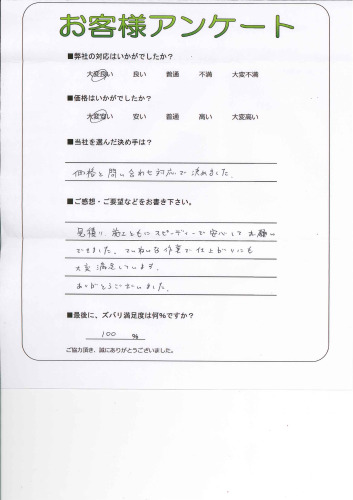 お客様アンケート
■弊社の対応はいかがでしたか？
大変良い 良い 普通 不満 大変不満
■価格はいかがでしたか？
大変安い 安い 普通 高い 大変高い
■当社を選んだ決め手は？
価格と問い合わせ対応で決めました。
■ご感想・ご要望などをお書き下さい。
見積り、施工ともにスピーディーで安心してお願い
できました。ていねいな作業で仕上がりにも
大変満足しています。
ありがとうございました。
■最後に、ズバリ満足度は何%ですか？
100 %
ご協力頂き、誠にありがとうございました。